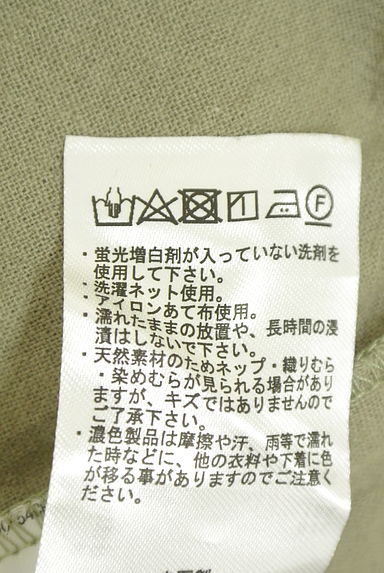 F
・蛍光増白剤が入っていない洗剤を
使用して下さい。
・洗濯ネット使用。
・アイロンあて布使用。
・濡れたままの放置や、長時間の浸
漬はしないで下さい。
・天然素材のためネップ・織りむら
・染めむらが見られる場合があり
ますが、キズではありませんので
ご了承下さい。
・濃色製品は摩擦や汗、雨等で濡れ
た時などに、他の衣料や下着に色
が移る事がありますのでご注意く
ださい。